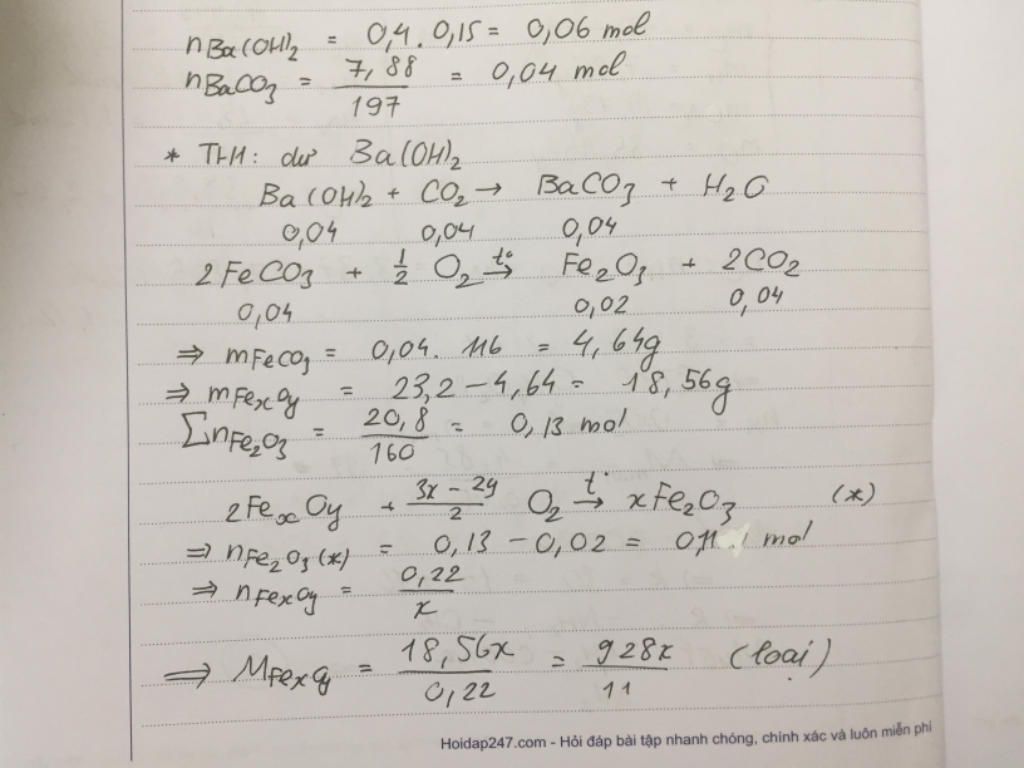 nBa(OH)₂ = 0,4 . 0,15 = 0,06 mol
nBaCO₃ = 7,88/197 = 0,04 mol
* TH1: dư Ba(OH)₂
Ba(OH)₂ + CO₂ → BaCO₃ + H₂O
0,04 0,04 0,04
2FeCO₃ + 1/2 O₂ t°→ Fe₂O₃ + 2CO₂
0,04 0,02 0,04
⇒ mFeCO₃ = 0,04 . 116 = 4,64g
⇒ mFexOy = 23,2 - 4,64 = 18,56g
∑nFe₂O₃ = 20,8/160 = 0,13 mol
2FexOy + (3x - 2y)/2 O₂ t°→ xFe₂O₃ (*)
⇒ nFe₂O₃(*) = 0,13 - 0,02 = 0,11 mol
⇒ nFexOy = 0,22/x
⇒ MFexOy = 18,56x/0,22 = 928x/11 (loại)
Hoidap247.com - Hỏi đáp bài tập nhanh chóng, chính xác và luôn miễn phí